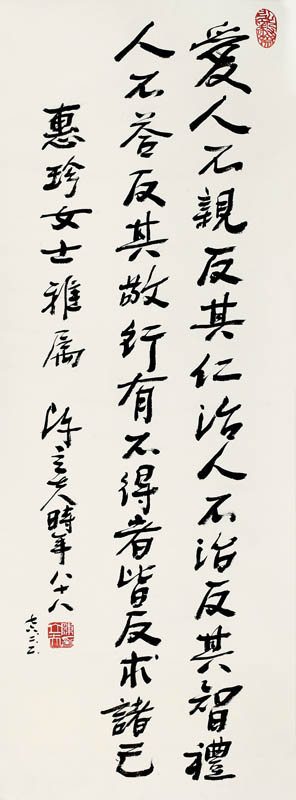 愛人不親反其仁治人不治反其智禮
人不答反其敬行有不得者皆反求諸己
惠珍女士雅屬 陳立夫時年八十八
七六.三.二.